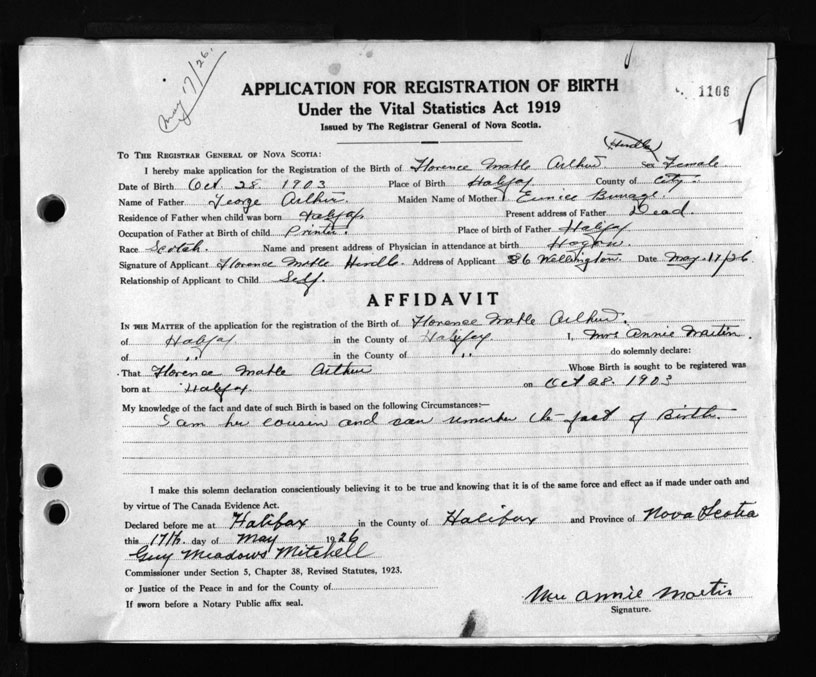 May 17/26.
APPLICATION FOR REGISTRATION OF BIRTH
1106
Under the Vital Statistics Act 1919
Issued by The Registrar General of Nova Scotia.
(Hindle)
TO THE REGISTRAR GENERAL OF NOVA SCOTIA:
I hereby make application for the Registration of the Birth of Florence Mable Arthur Sex Female
Date of Birth Oct 28. 1903 Place of Birth Halifax County of City.
Name of Father George Arthur. Maiden Name of Mother Eunice
Residence of Father when child was born Halifax Present address of Father Dead.
Occupation of Father at Birth of child Printer. Place of birth of Father Halifax
Race Scotch. Name and present address of Physician in attendance at birth
Signature of Applicant Florence Mable Hindle. Address of Applicant 86 Wellington. Date May. 17/26
Relationship of Applicant to Child Self.
AFFIDAVIT
IN THE MATTER of the application for the registration of the Birth of Florence Mable Arthur.
of Halifax in the County of Halifax I, Mrs Annie Martin
of " in the County of " do solemnly declare:
That Florence Mable Arthur Whose Birth is sought to be registered was
born at Halifax on Oct 28. 1903
My knowledge of the fact and date of such Birth is based on the following Circumstances:—
I am her cousin and can remember the fact of Birth.
I make this solemn declaration conscientiously believing it to be true and knowing that it is of the same force and effect as if made under oath and
by virtue of The Canada Evidence Act.
Declared before me at Halifax in the County of Halifax and Province of Nova Scotia
this 17th day of May 1926
Guy Meadows Mitchell
Commissioner under Section 5, Chapter 38, Revised Statutes, 1923.
or Justice of the Peace in and for the County of
If sworn before a Notary Public affix seal.
Mrs Annie Martin
Signature.